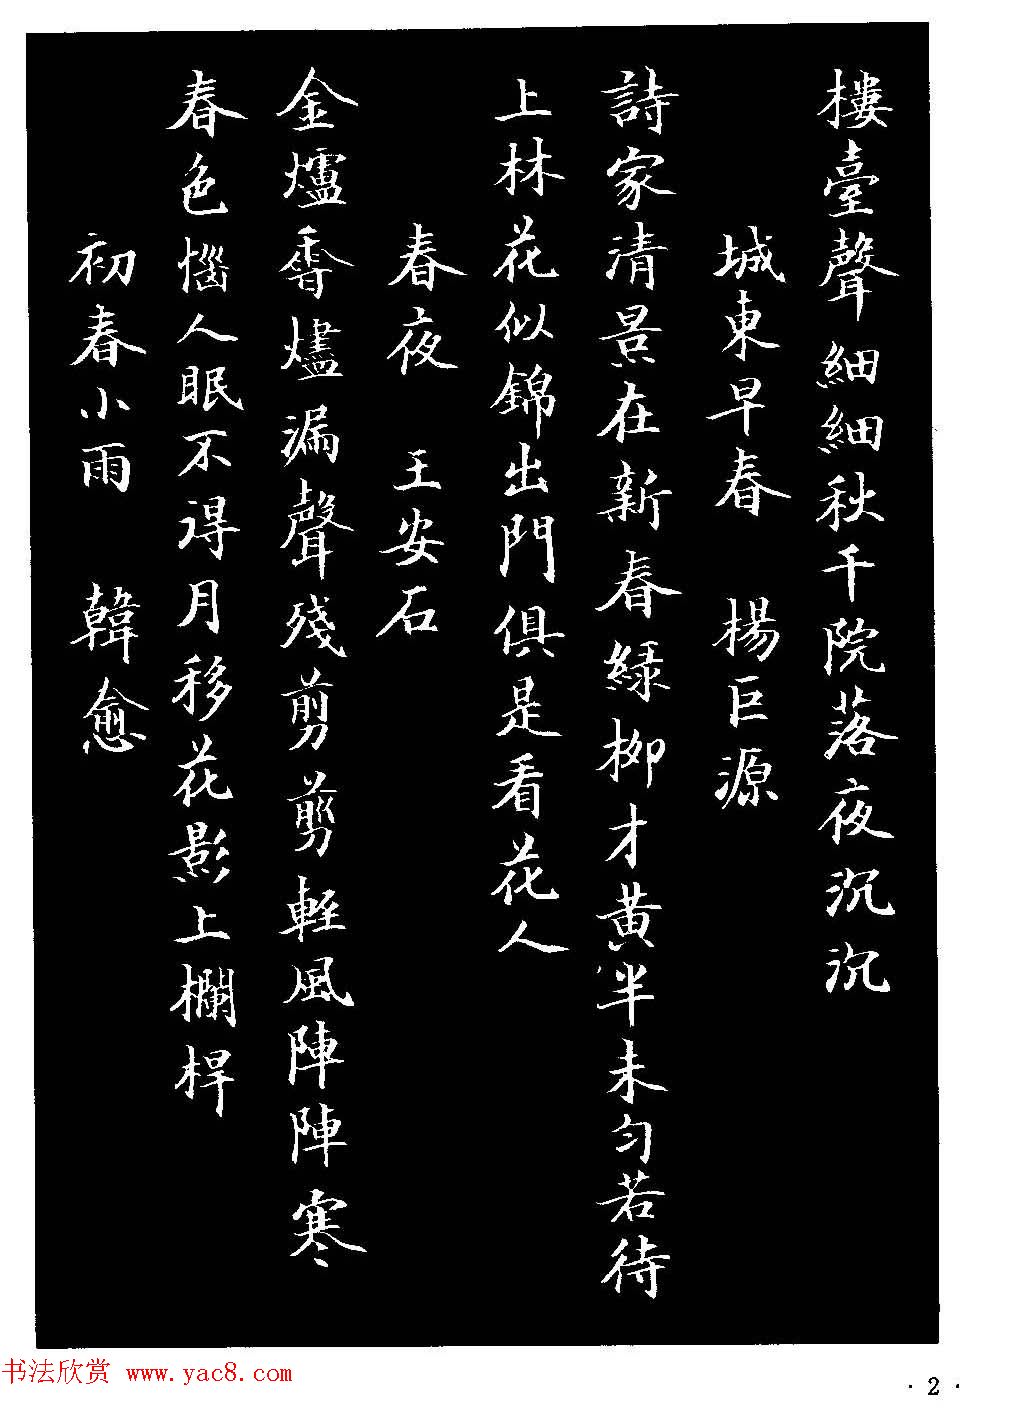 樓臺聲細細秋千院落夜沉沉
城東早春 楊巨源
詩家清景在新春綠柳才黃半未勻若待
上林花似錦出門俱是看花人
春夜 王安石
金爐香燼漏聲殘剪剪輕風陣陣寒
春色惱人眠不得月移花影上欄桿
初春小雨 韓愈
书法欣赏 www.yac8.com
· 2 ·